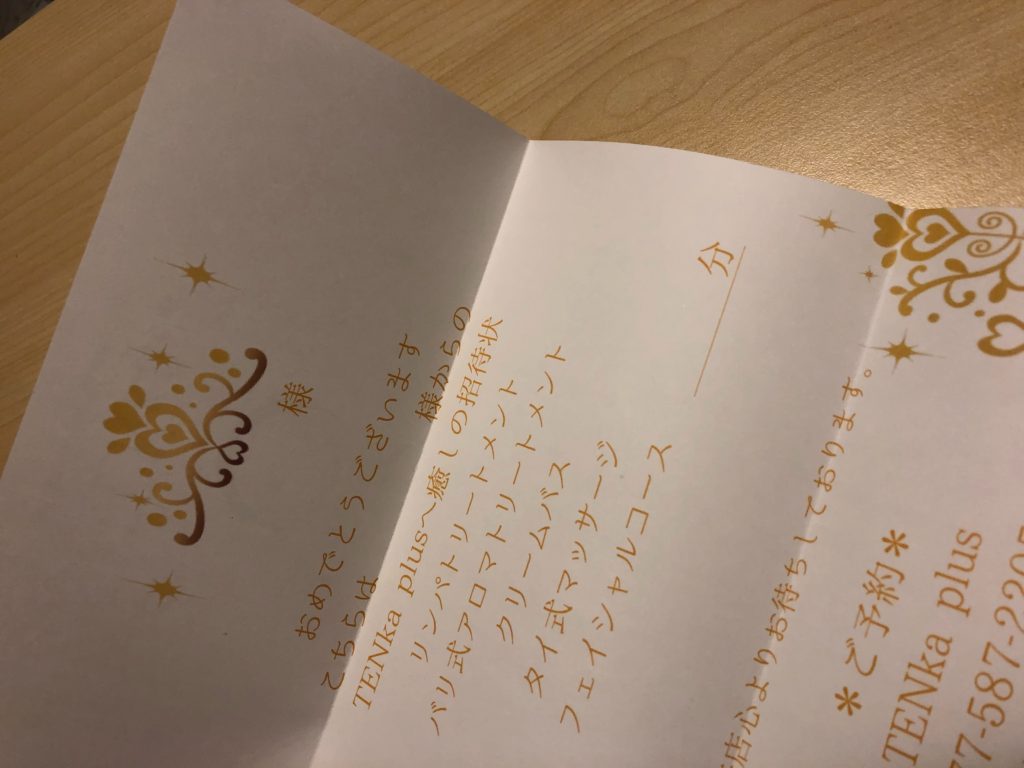 様
おめでとうございます
こちらは
様からの
TENka plusへ癒しの招待状
リンパトリートメント
バリ式アロマトリートメント
クリームバス
タイ式マッサージ
フェイシャルコース
分
店心よりお待ちしております。
*ご予約*
TENka plus
77-587-220